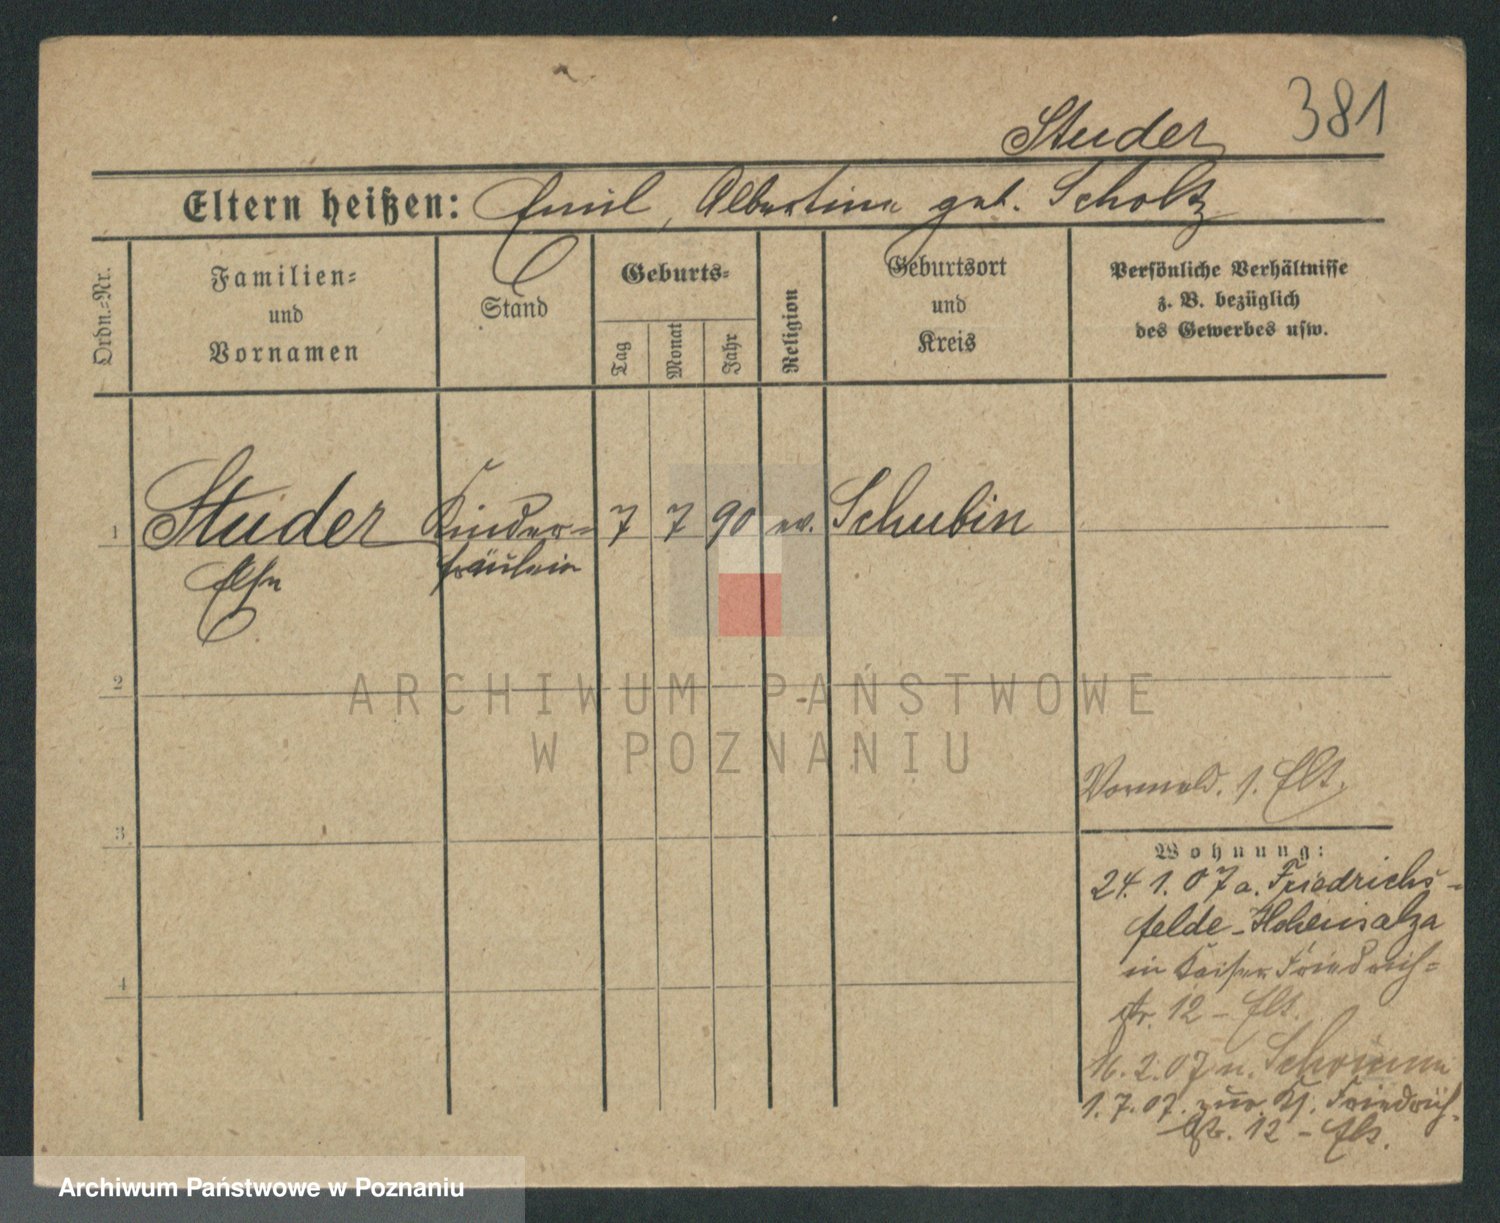 381
Studer
Eltern heißen: Emil, Albertine geb. Scholtz
Ordn.=Nr.
Familien=
und
Vornamen
Stand
Geburts=
Tag
Monat
Jahr
Religion
Geburtsort
und
Kreis
Persönliche Verhältnisse
z. B. bezüglich
des Gewerbes usw.
1 Studer Kinder= 7 7 90 ev. Schubin
Else fräulein
2
ARCHIWUM PAŃSTWOWE
W POZNANIU
Vormeld. 1. Elt.
3
Wohnung:
24.1.07 a. Friedrichs-
felde-Hohensalza
in Kaiser Friedrich=
4
str. 12 - Elt.
11.2.07 n.
1.7.07. zur. K. Friedrich-
str. 12 - Elt.
Archiwum Państwowe w Poznaniu